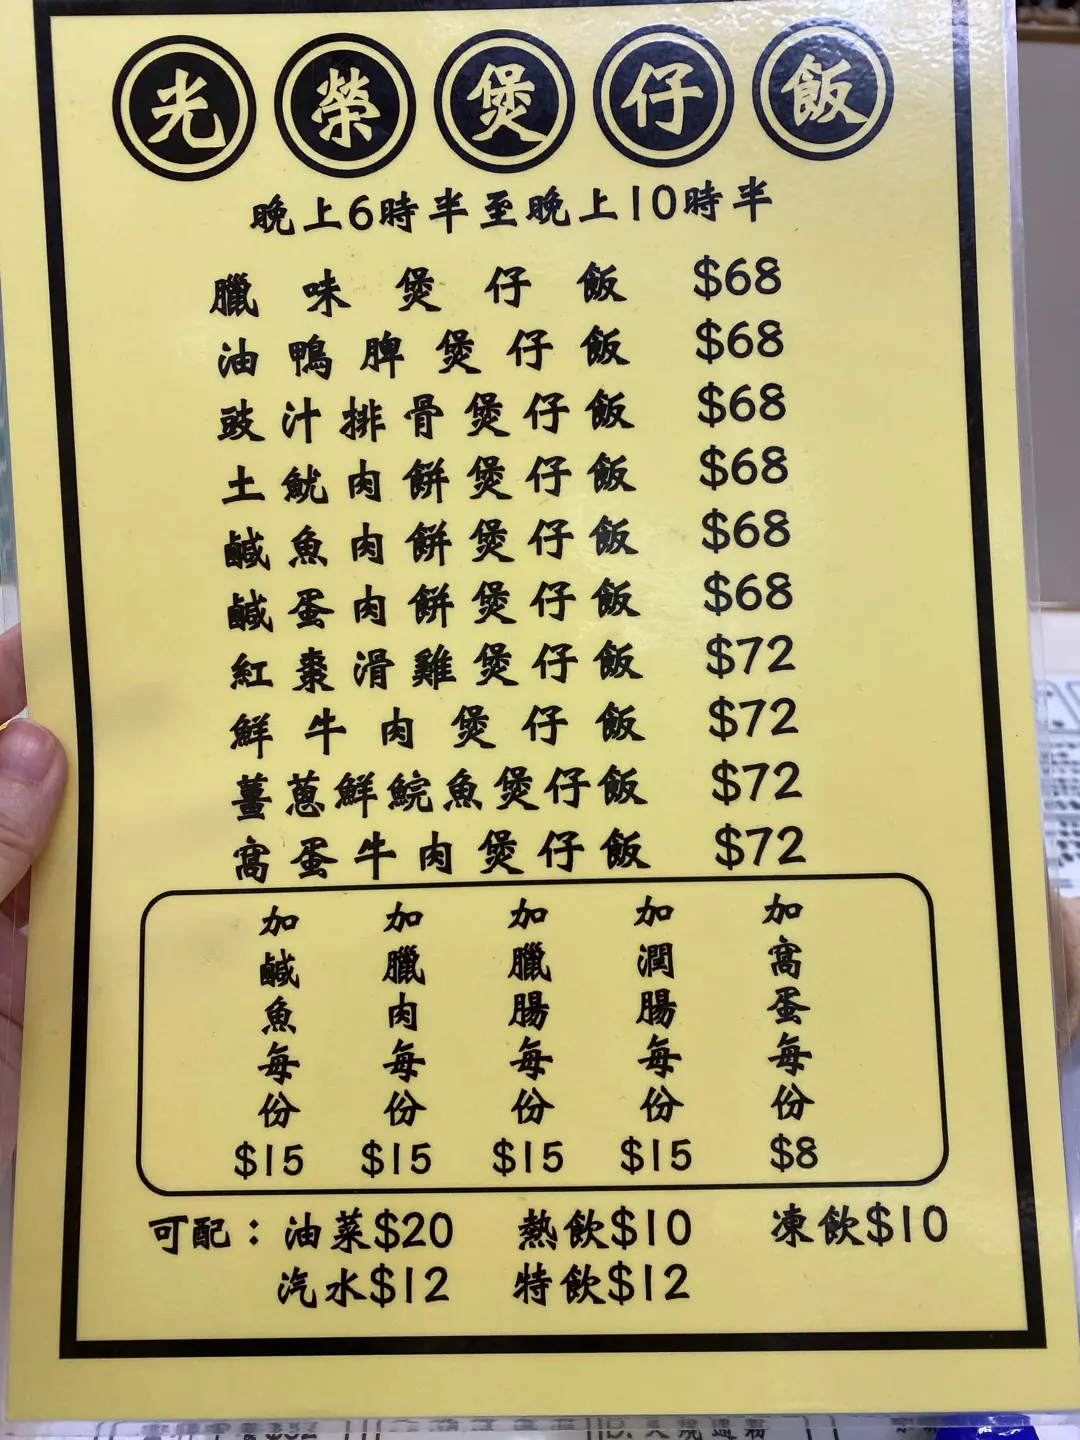 光榮煲仔飯
晚上6時半至晚上10時半
臘味煲仔飯 $68
油鴨脾煲仔飯 $68
豉汁排骨煲仔飯 $68
土魷肉餅煲仔飯 $68
鹹魚肉餅煲仔飯 $68
鹹蛋肉餅煲仔飯 $68
紅棗滑雞煲仔飯 $72
鮮牛肉煲仔飯 $72
薑蔥鮮鯇魚煲仔飯 $72
窩蛋牛肉煲仔飯 $72
加鹹魚每份 $15
加臘肉每份 $15
加臘腸每份 $15
加潤腸每份 $15
加窩蛋每份 $8
可配：油菜$20 熱飲$10 凍飲$10
汽水$12 特飲$12